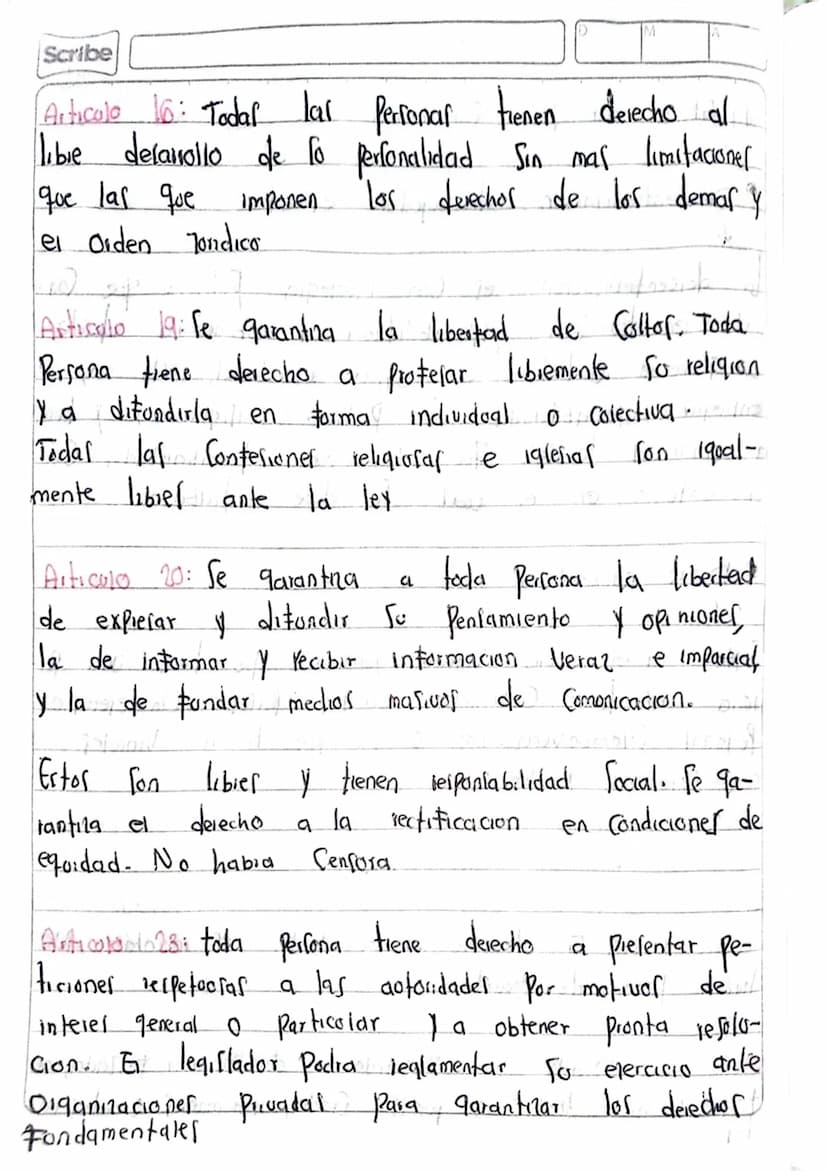 Scribe
D M A
Articulo 16: Todas las Personas tienen derecho al
libre desarrollo de su personalidad Sin mas limitaciones
que las que imponen los derechos de los demas y
el Orden Juridico
Articulo 19: Se garantiza la libertad de Cultos. Toda
Persona tiene derecho a profesar libremente su religion
y a difundirla en forma individual o Colectiva.
Todas las Confesiones religiosas e iglesias son igual-
mente libres ante la ley
Articulo 20: Se garantiza a toda Persona la libertad
de expresar y difundir su Pensamiento y opiniones,
la de informar y recibir informacion Veraz e imparcial
y la de fundar medios masivos de Comunicacion.
Estos Son libres y tienen responsabilidad Social. Se ga-
rantiza el derecho a la rectificacion en Condiciones de
equidad. No habia Censura.
Articulo 23: toda Persona tiene derecho a Presentar pe-
ticiones respetuosas a las autoridades Por motivos de
interes general o Particular y a obtener Pronta resolu-
cion. El legislador Podra reglamentar su ejercicio ante
Organizaciones Privadas Para garantizar los derechos
Fondamentales